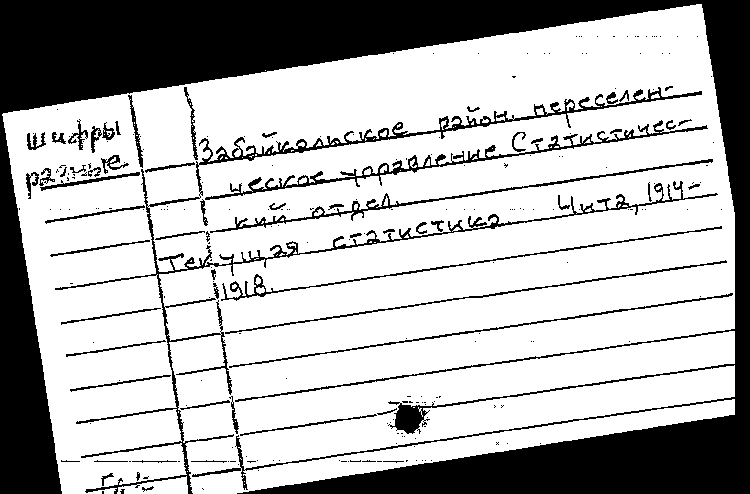 шифры
разные
Забайкальское район. переселен-
ческое управление. Статистичес-
кий отдел.
Текущая статистика. Чита, 1914-
1918.